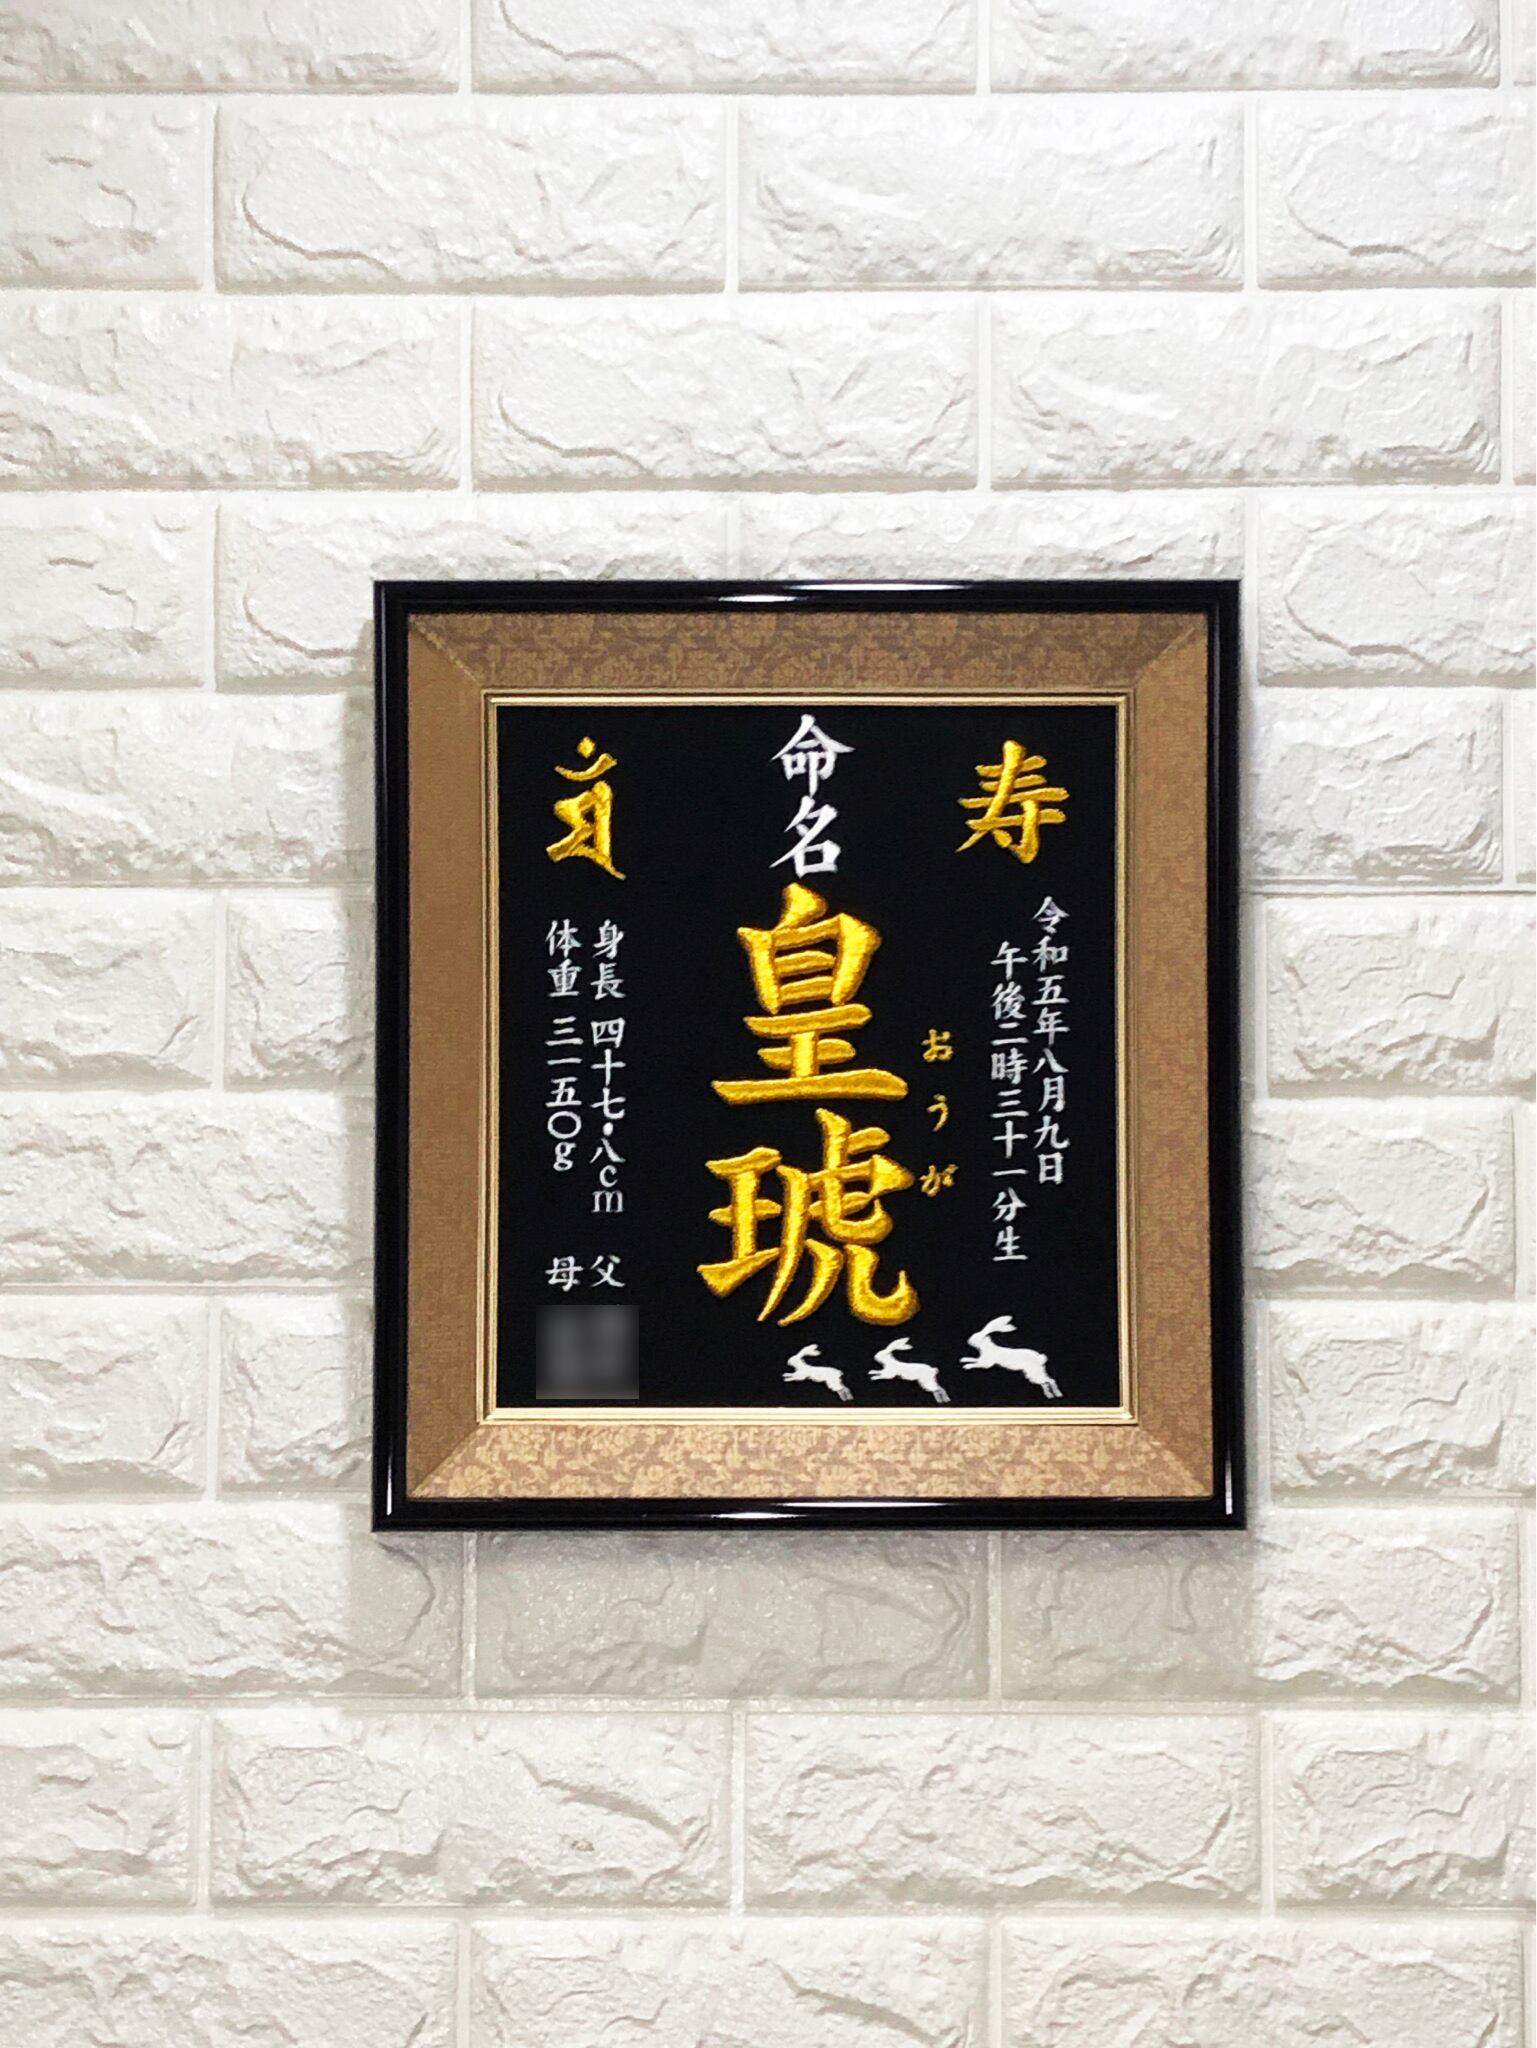 寿
令和五年八月九日
午後二時三十一分生
命名
皇琥
おうが
身長 四十七・八cm 父
体重 三一五〇g 母